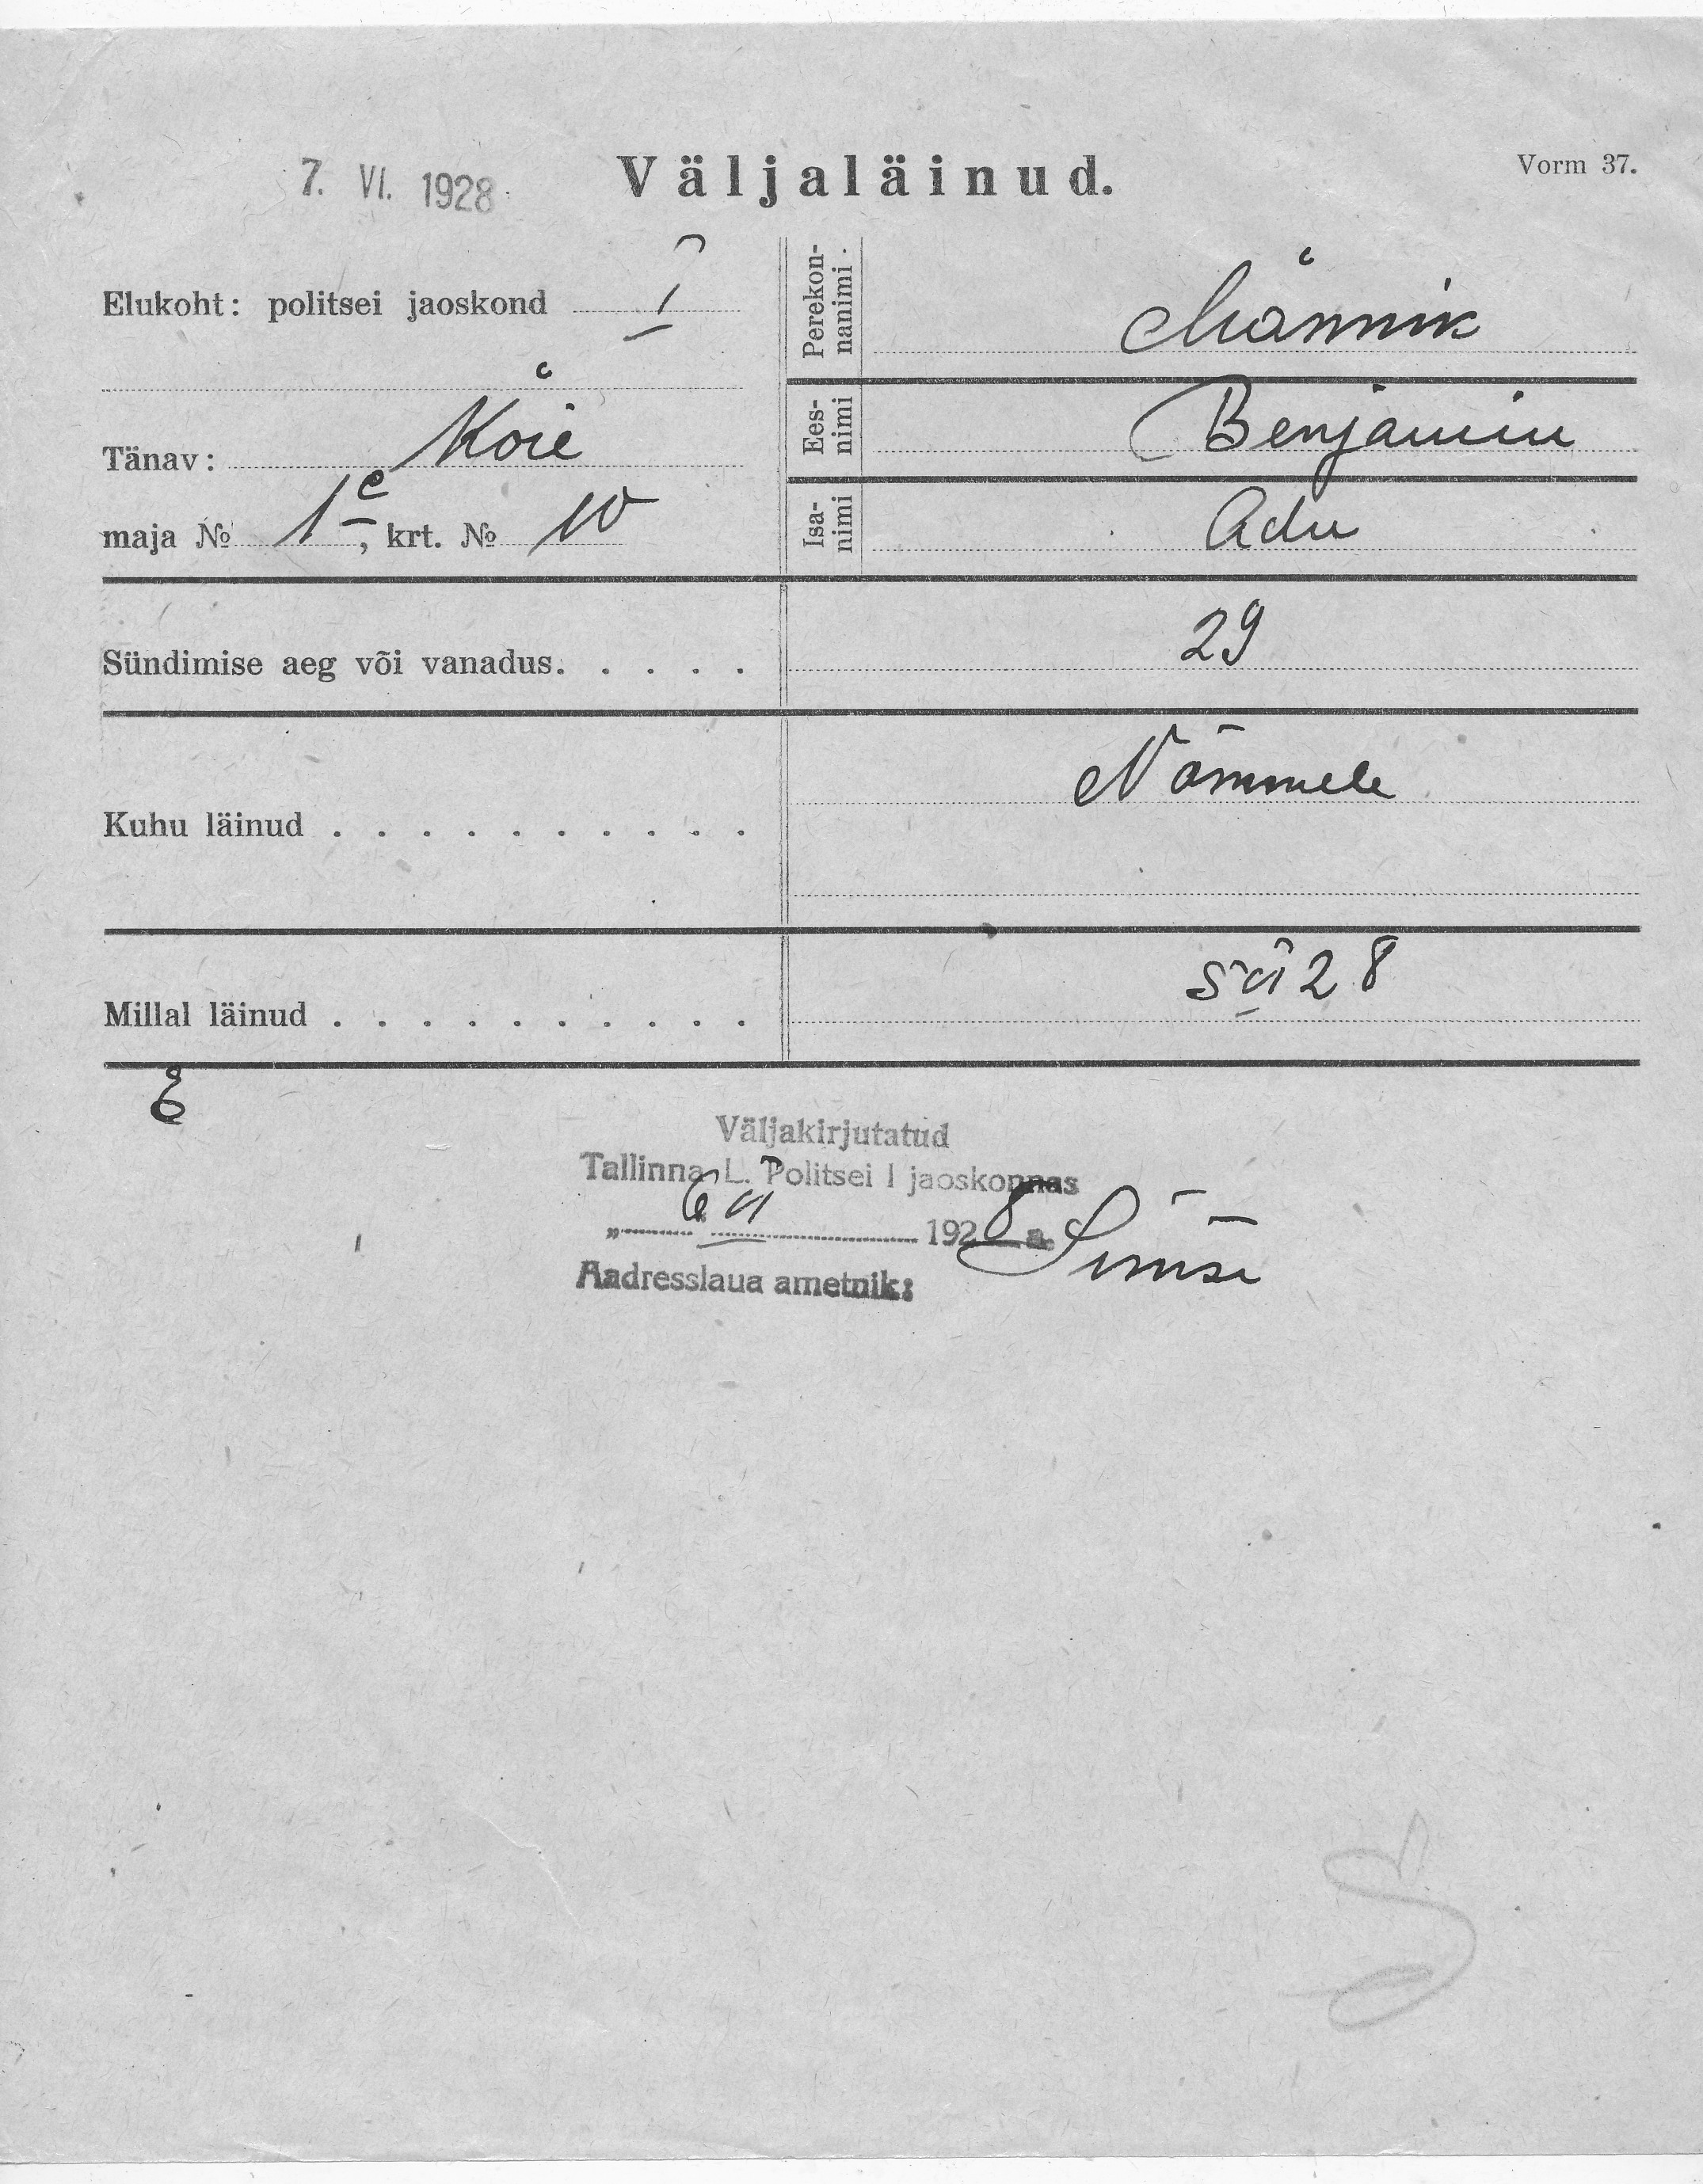 7. VI. 1928
Väljaläinud.
Vorm 37.
Elukoht: politsei jaoskond I
Tänav: Köie
maja № 1e, krt. № 10
Perekon-
nanimi
Männik
Ees-
nimi
Benjamin
Isa-
nimi
Adu
Sündimise aeg või vanadus. . . . . 29
Kuhu läinud . . . . . . . . . . Nõmmele
Millal läinud . . . . . . . . . . 5 VI 28
Väljakirjutatud
Tallinna L. Politsei I jaoskonnas
„ 6 " VI 1928 a.
Aadresslaua ametnik: